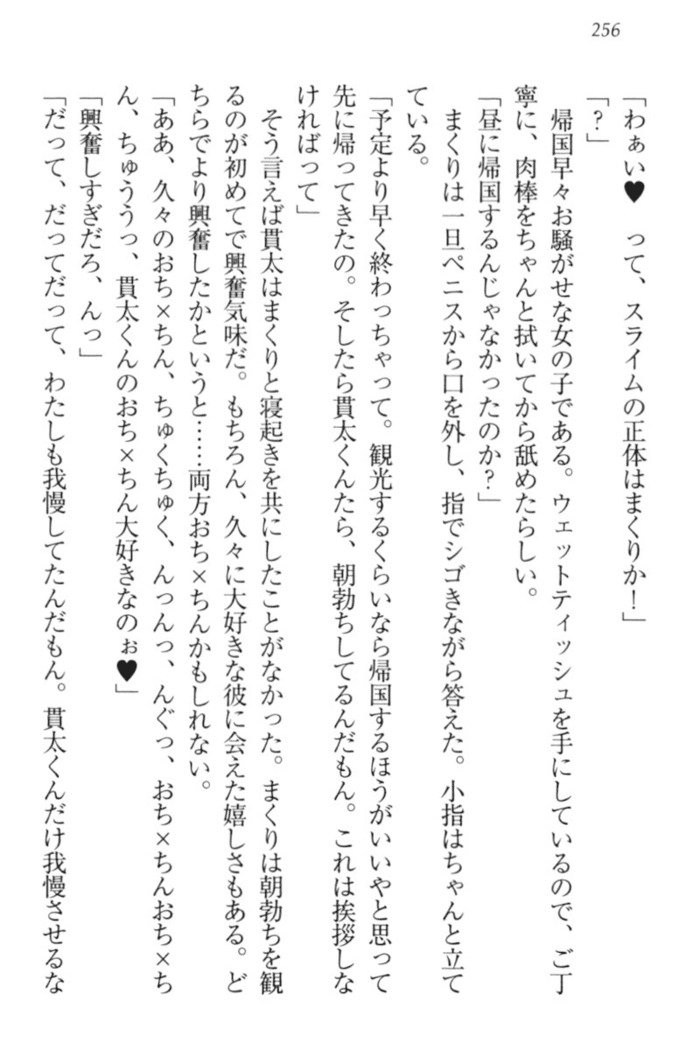 256
「わぁい♥　って、スライムの正体はまくりか！」
「？」
　帰国早々お騒がせな女の子である。ウェットティッシュを手にしているので、ご丁
寧に、肉棒をちゃんと拭いてから舐めたらしい。
「昼に帰国するんじゃなかったのか？」
　まくりは一旦ペニスから口を外し、指でシゴきながら答えた。小指はちゃんと立て
ている。
「予定より早く終わっちゃって。観光するくらいなら帰国するほうがいいやと思って
先に帰ってきたの。そしたら貫太くんたら、朝勃ちしてるんだもん。これは挨拶しな
ければって」
　そう言えば貫太はまくりと寝起きを共にしたことがなかった。まくりは朝勃ちを観
るのが初めてで興奮気味だ。もちろん、久々に大好きな彼に会えた嬉しさもある。ど
ちらでより興奮したかというと……両方おち×ちんかもしれない。
「ああ、久々のおち×ちん、ちゅくちゅく、んっんっ、んぐっ、おち×ちんおち×ち
ん、ちゅううっ、貫太くんのおち×ちん大好きなのぉ♥」
「興奮しすぎだろ、んっ」
「だって、だってだって、わたしも我慢してたんだもん。貫太くんだけ我慢させるな